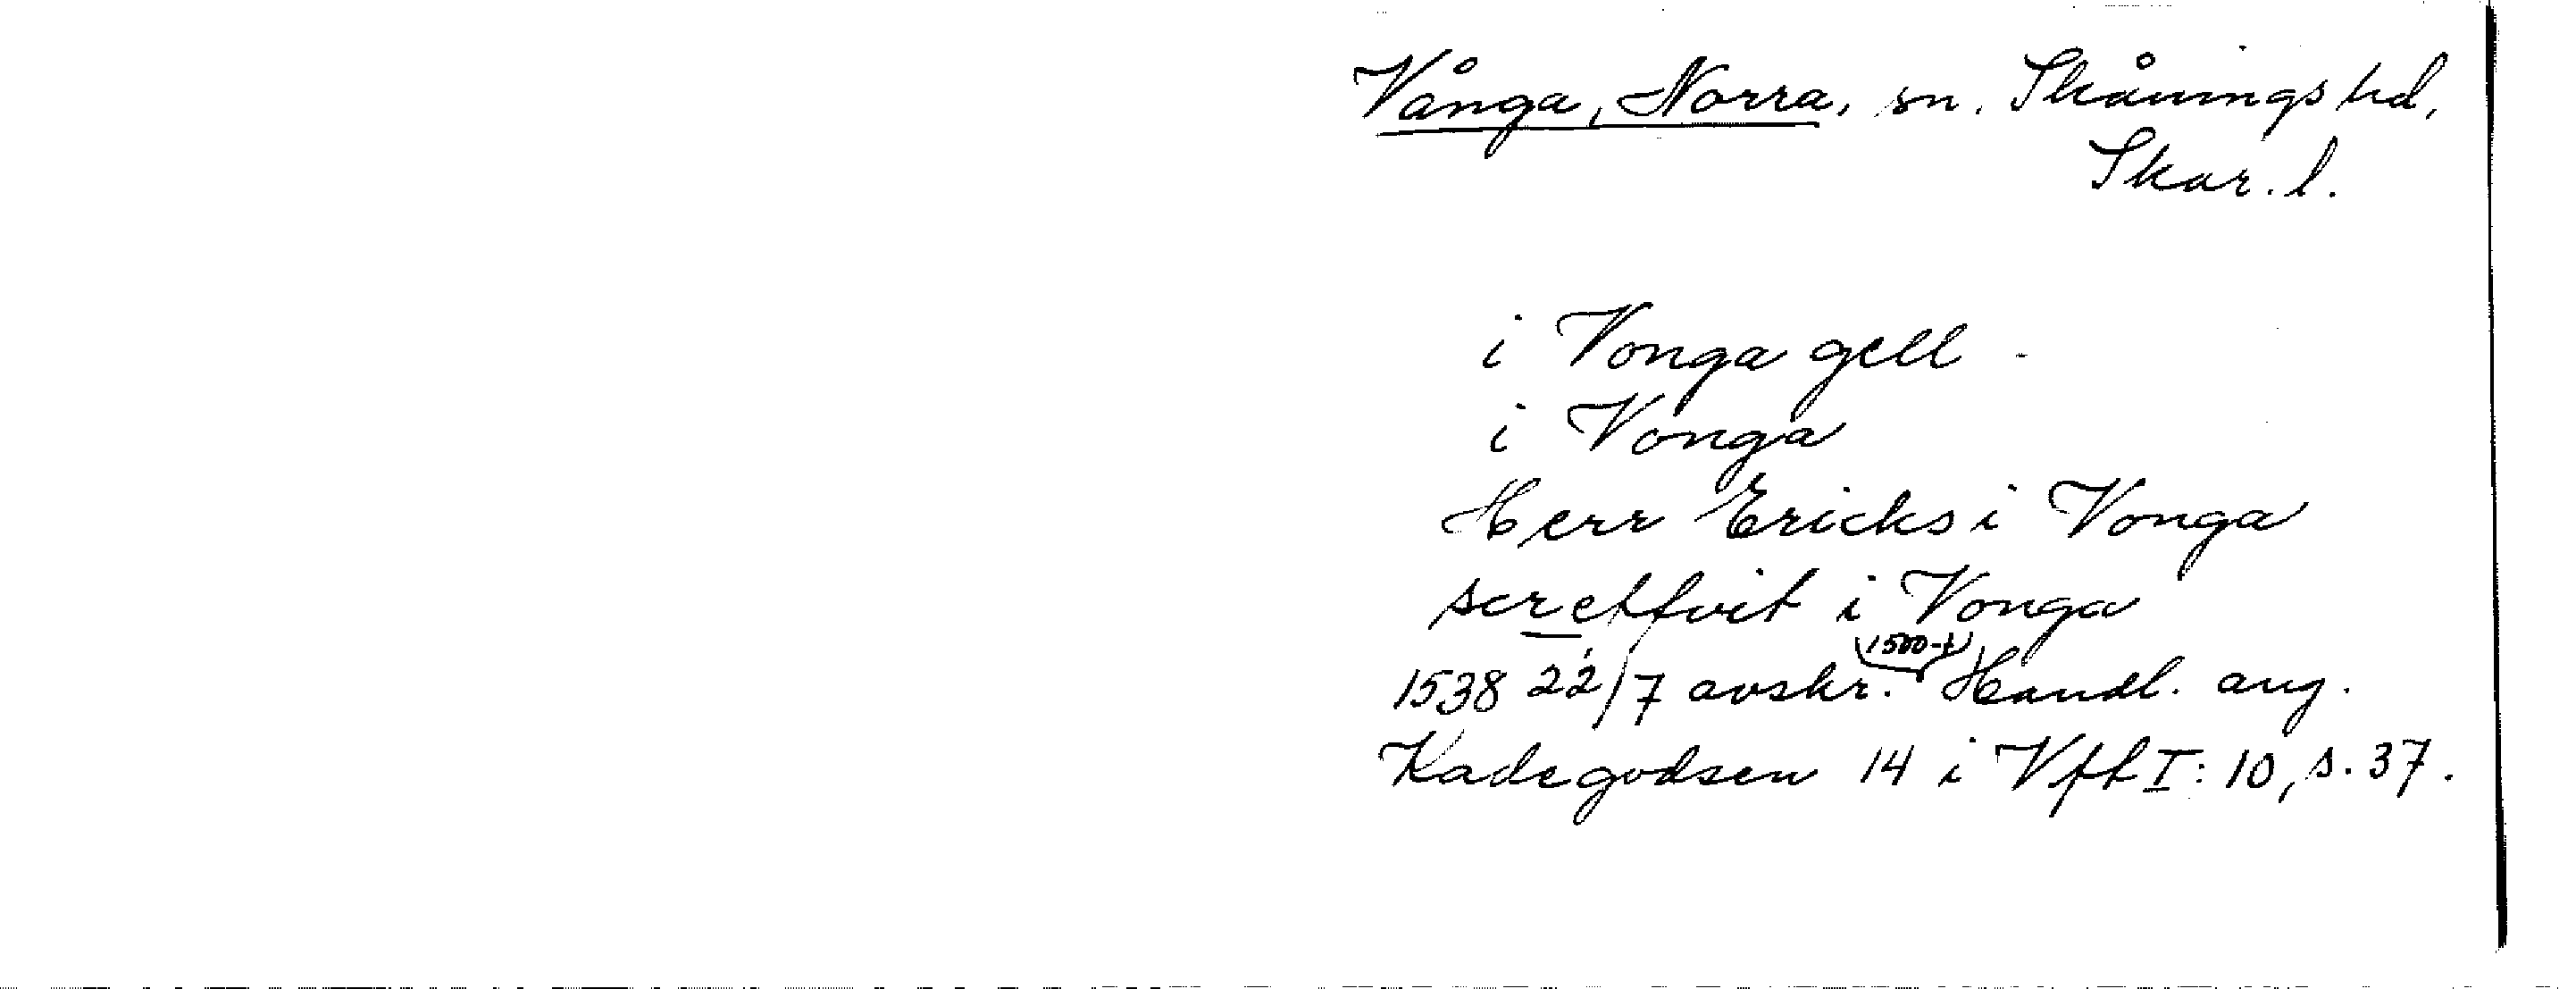 Vånga, Norra, sn. Skånings hd,
Skar. l.
i Vonga gell -
i Vonga
Herr Ericks i Vonga
scretfvit i Vonga
1538 22/7 avskr. (1500-t) Handl. ang.
Kadegodsen 14 i Vft I: 10, s. 37.